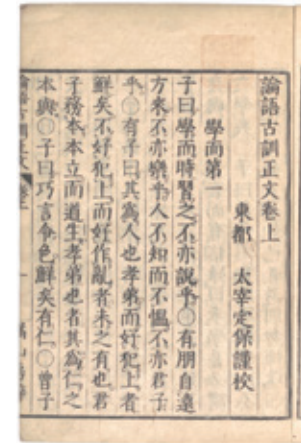 論語古訓正文卷上
東都 太宰定保謹校
學而第一
子曰學而時習之不亦說乎○有朋自遠
方來不亦樂乎人不知而不慍不亦君子
乎○有子曰其爲人也孝弟而好犯上者
鮮矣不好犯上而好作亂者未之有也君
子務本本立而道生孝弟也者其爲仁之
本與○子曰巧言令色鮮矣有仁○曾子
論語古訓正文 卷上 一